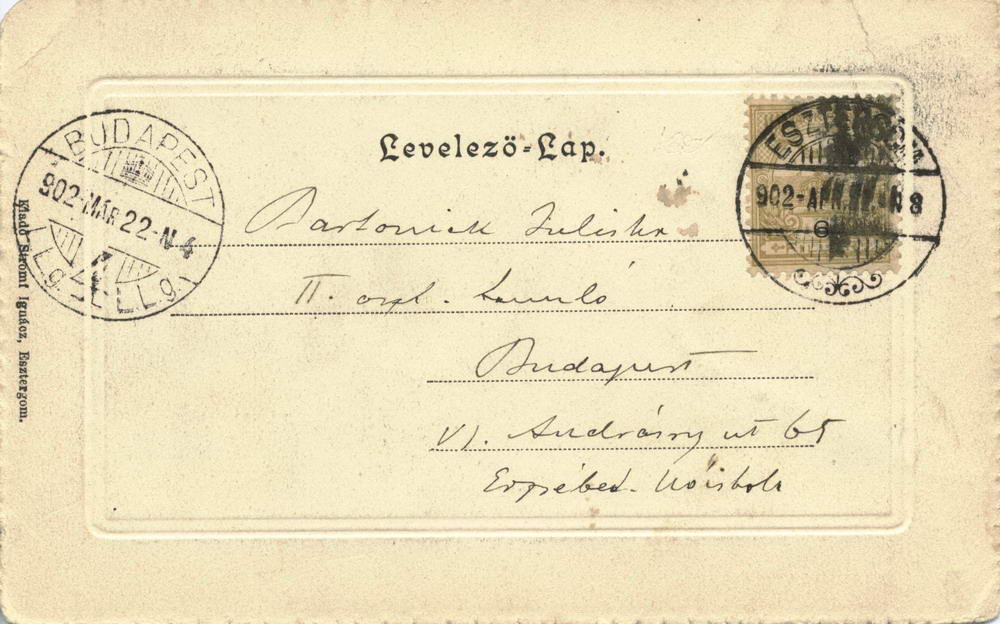 Levelező=Lap.
BUDAPEST
902-MÁR 22-N 4
ESZTERGOM
902-
N 8
Bartoniek Juliska
II. oszt. tanuló
Budapest
VI. Andrássy ut 65
Erzsébet- Nőiskola
Kiadó Stromf Ignácz, Esztergom.